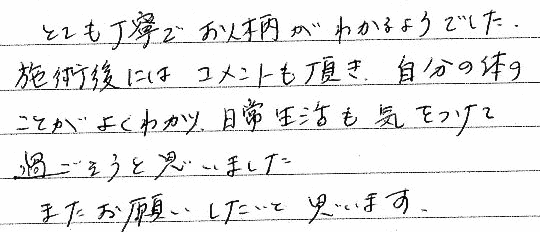 とても丁寧でお人柄がわかるようでした.
施術後には コメントも頂き、自分の体の
ことが よくわかり、日常生活も 気をつけて
過ごそうと思いました
またお願いしたいと 思います.